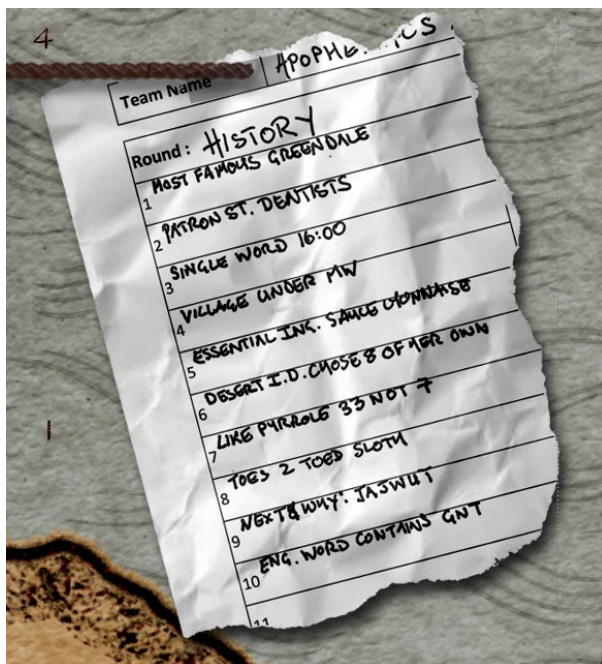 4
Team Name
Round: HISTORY
1 MOST FAMOUS GREENDALE
2 PATRON ST. DENTISTS
3 SINGLE WORD 16:00
4 VILLAGE UNDER MW
5 ESSENTIAL ING. SAUCE LYONNAISE
6 DESERT I.D. CHOSE 8 OF HER OWN
7 LIKE PYRROLE 33 NOT 7
8 TOES 2 TOED SLOTH
9 NEXT & WHY: JAJWUT
10 ENG. WORD CONTAINS GNT
11